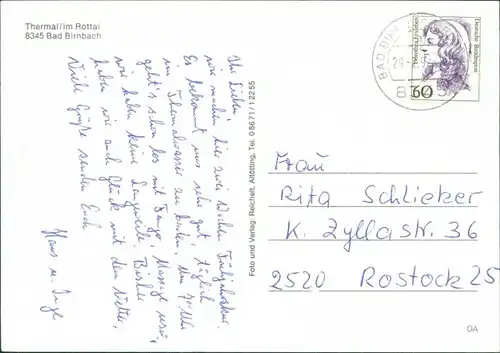 Thermal/im Rottal
8345 Bad Birnbach
Ihr Lieben,
wir machen hier zwei Wochen Frühjahrskur.
Es bekommt uns sehr gut, täglich
im Thermalwasser zu baden. Um 7 Uhr
geht's schon los mit Fango, Massage usw.,
wir haben keine Langeweile. Bisher
haben wir auch Glück mit dem Wetter.
Viele Grüße senden Euch
Hans u. Inge
Foto und Verlag: Reichelt, Altötting, Tel. 08671/12255
BAD BIRNBACH
Deutsche Bundespost
60
Frau
Rita Schlieker
K. Zyllastr. 36
2520 Rostock 25
OA